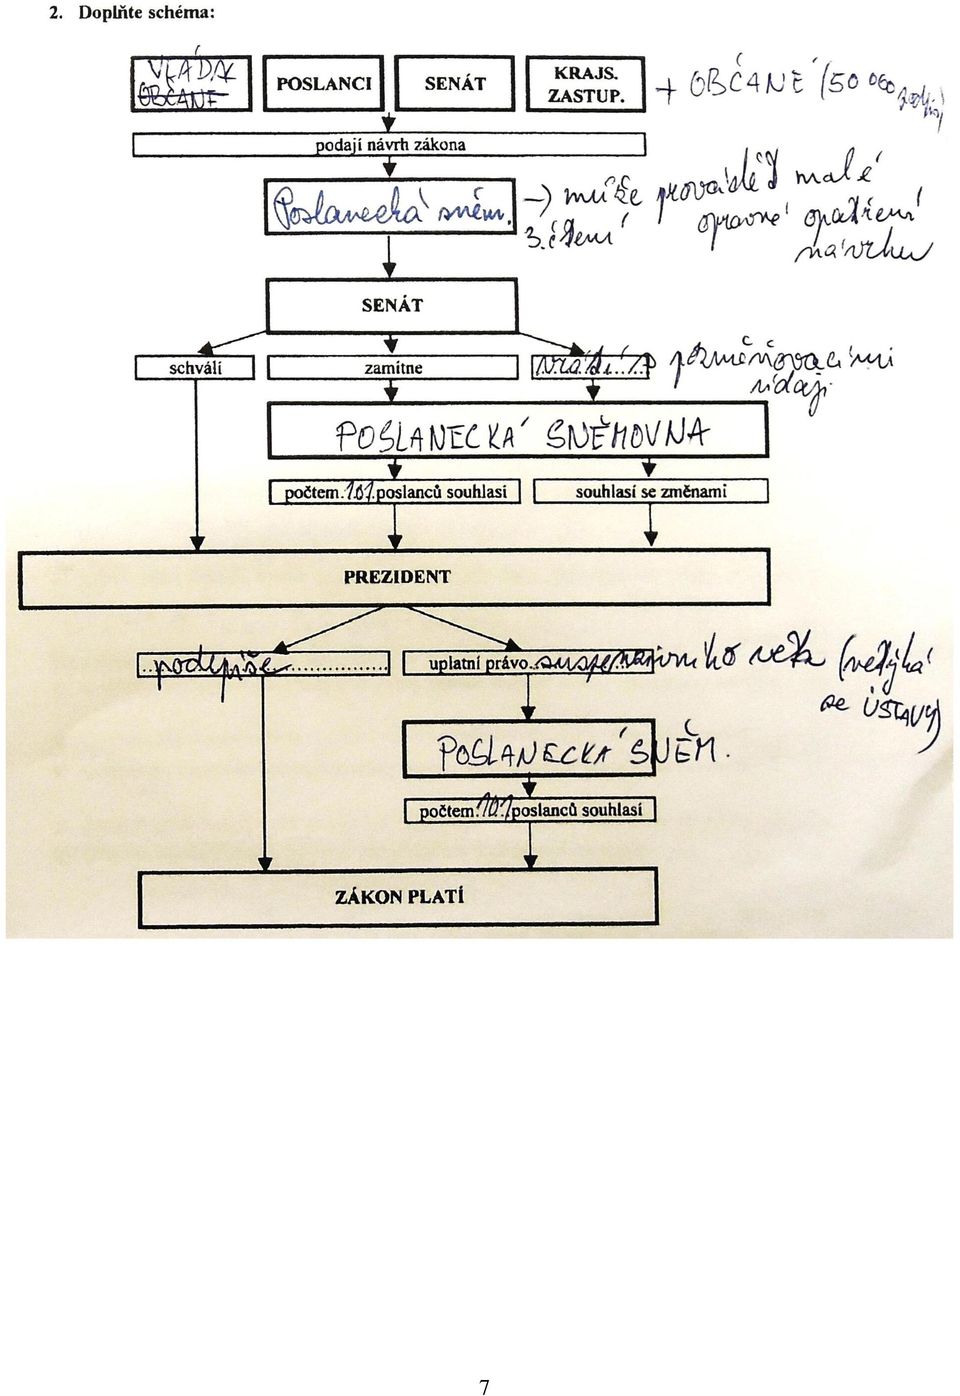 2. Doplňte schéma:
VLÁDA
OBČANÉ
POSLANCI
SENÁT
KRAJS.
ZASTUP.
+ OBČANÉ (50 000
podají návrh zákona
Poslanecká sněm.
-) může provádět malé
3. čtení opravné opatření
návrhu
SENÁT
schválí
zamítne
vrátí s pozměňovacími
údaji
POSLANECKÁ SNĚMOVNA
počtem 101 poslanců souhlasí
souhlasí se změnami
PREZIDENT
podepíše
uplatní právo suspenzivního veta (netýká
se ÚSTAVY)
POSLANECKÁ SNĚM.
počtem 101 poslanců souhlasí
ZÁKON PLATÍ
7